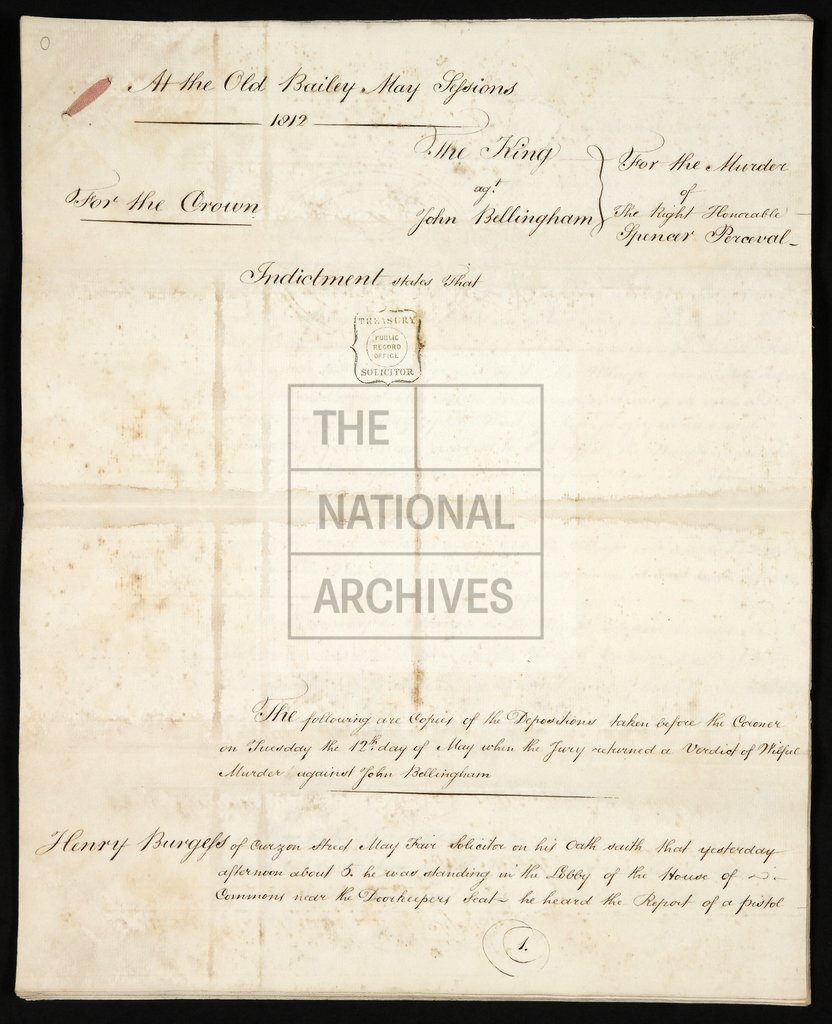 0
At the Old Bailey May Sessions
1812
The King
agt.
John Bellingham
For the Murder
of
The Right Honorable
Spencer Perceval
For the Crown
Indictment states That
TREASURY
PUBLIC
RECORD
OFFICE
SOLICITOR
THE
NATIONAL
ARCHIVES
The following are Copies of the Depositions taken before the Coroner
on Tuesday the 12th. day of May when the Jury returned a Verdict of Wilful
Murder against John Bellingham
Henry Burgess of Curzon Street May Fair Solicitor on his Oath saith that yesterday
afternoon about 5. he was standing in the Lobby of the House of
Commons near the Doorkeepers Seat - he heard the Report of a pistol
1.